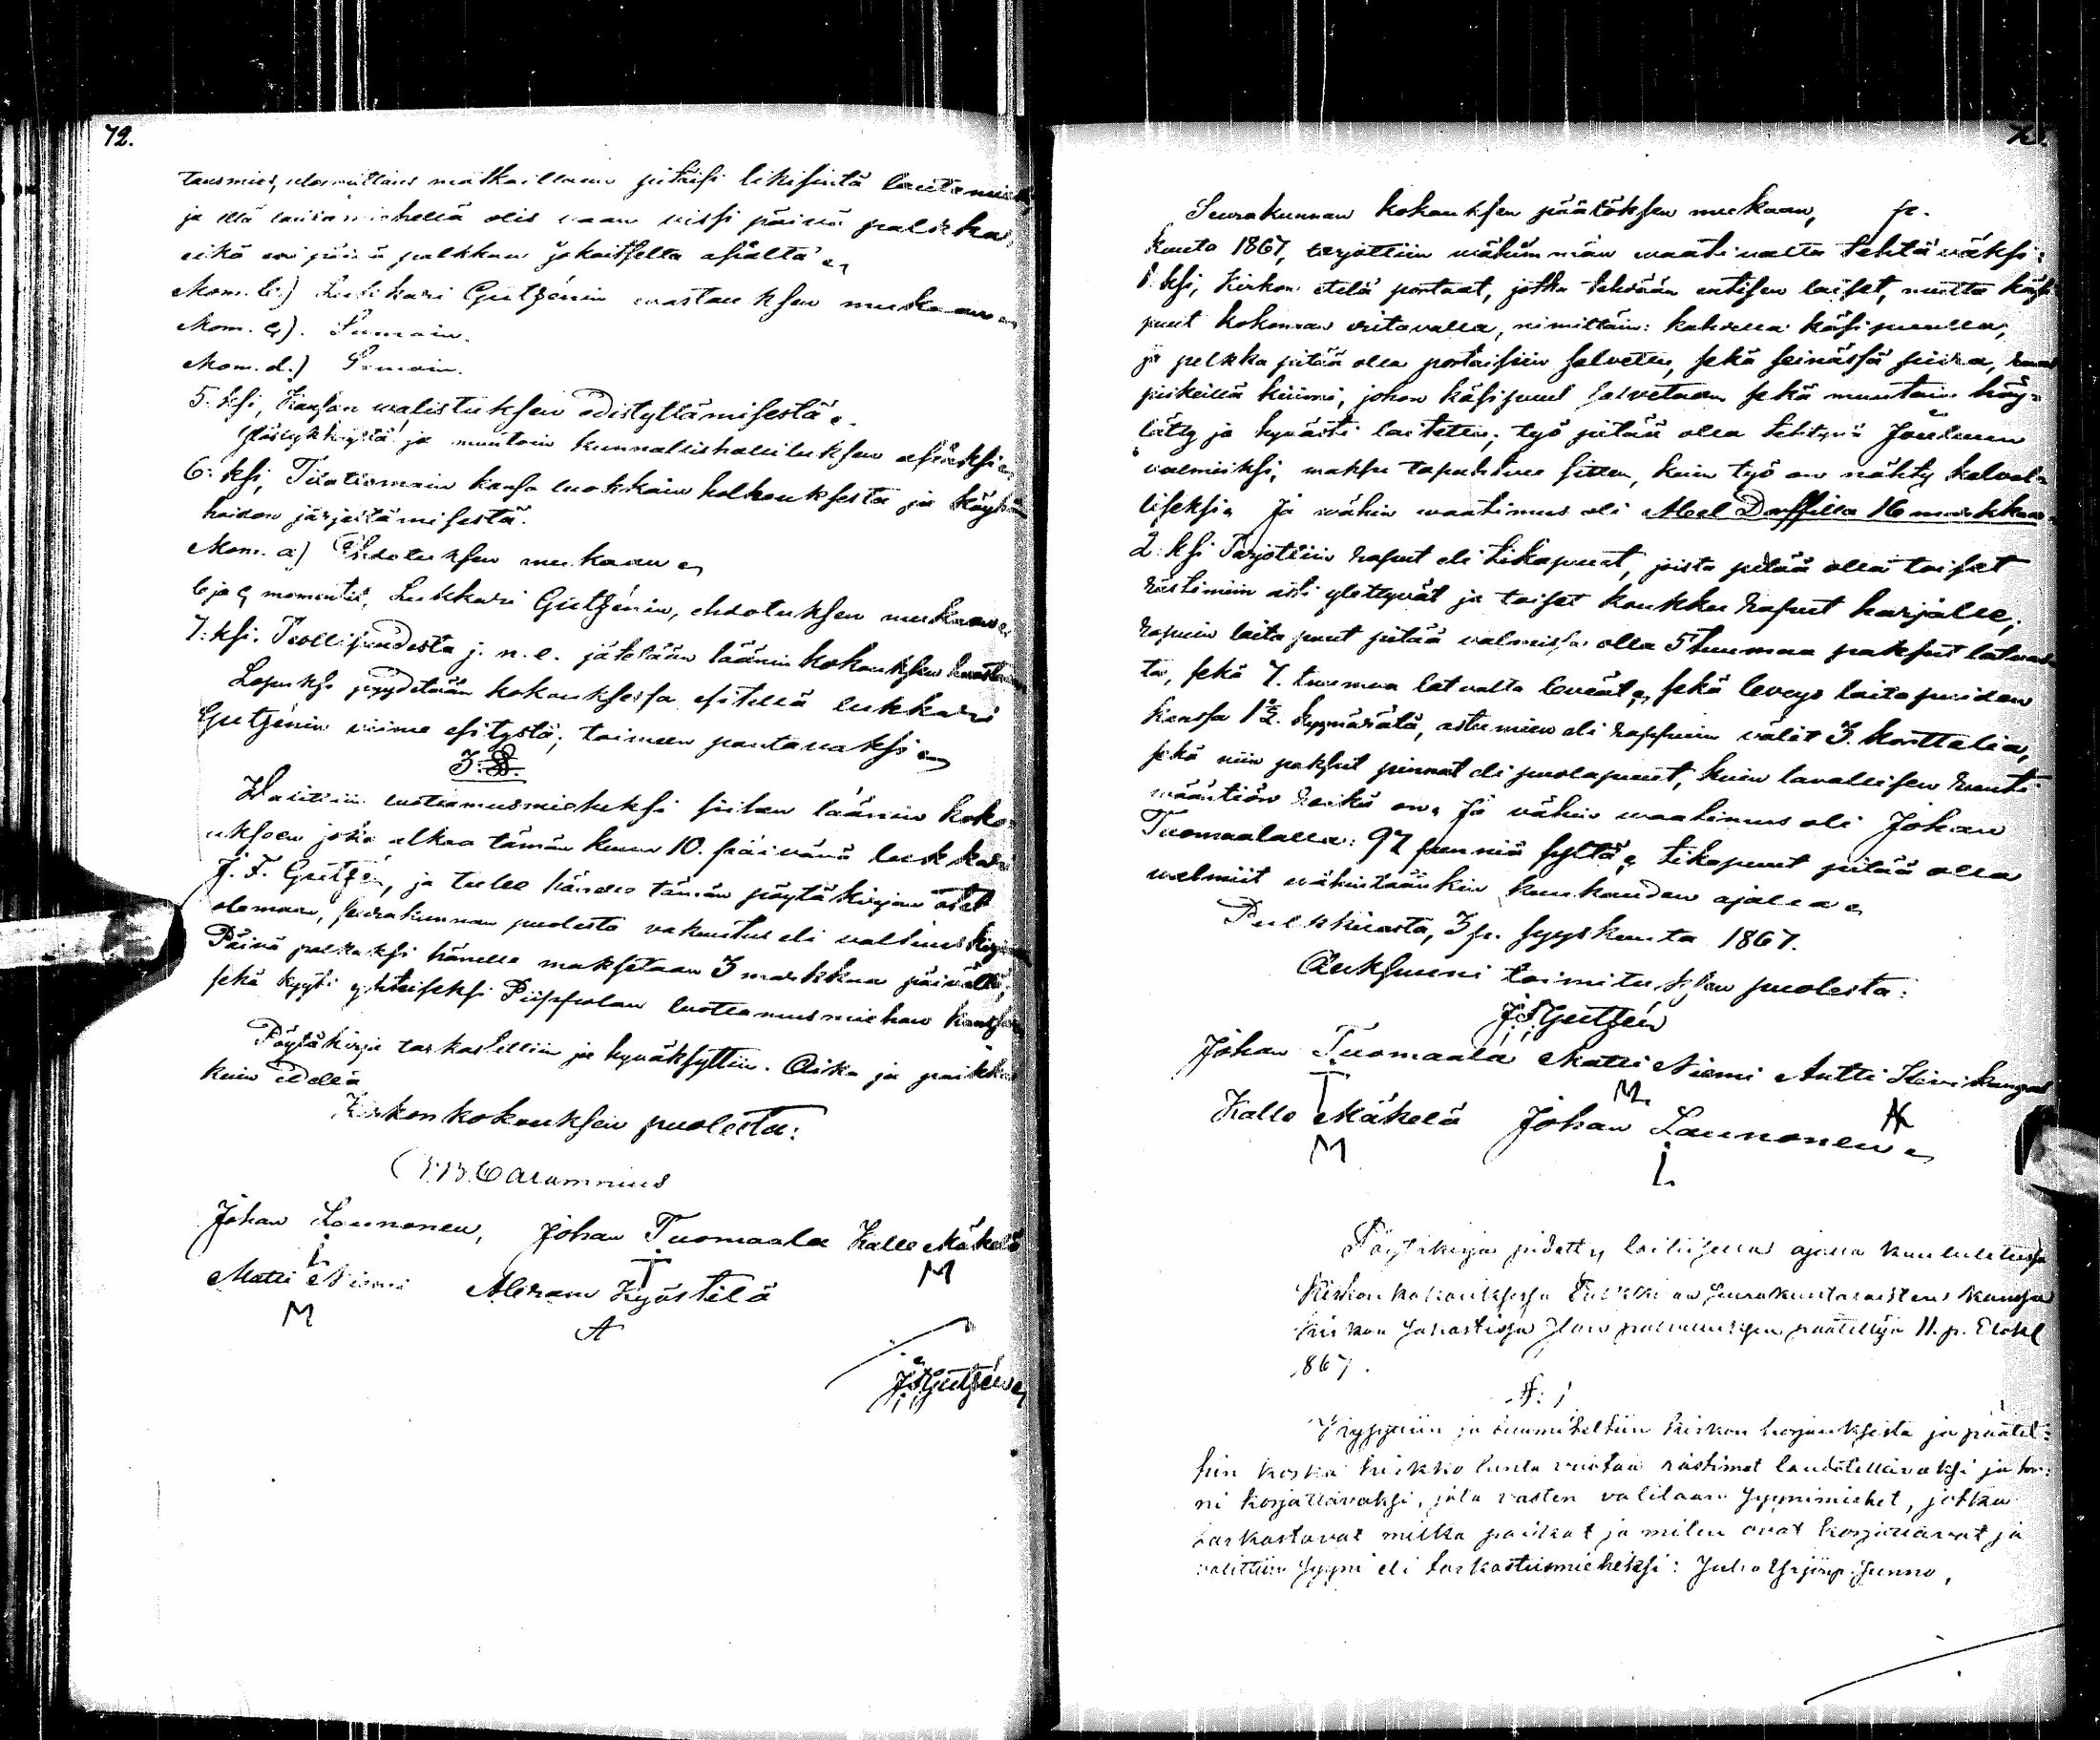 72.
tausmies, ulosmittaus matkaillaan pitäisi likisintä lautamies
ja ellä lautamiehellä olis vaan yksi päivä palkka,
eikä eri päivä palkkaa jokaitselta asialta
Mom. b.) Lukkari Gutzénin vastauksen mukaan
Mom. c). Samoin.
Mom. d.) Samoin.
5: ksi, Kansan valistuksen edistyttämisestä.
ja muutoin kunnallishallituksen
6: ksi, Tilattomain kansa luokkain holhouksesta ja
hoidon järjestämisestä.
Mom. a) Ehdotuksen mukaan
b ja c momentit, Lukkari Gutzénin, ehdotuksen mukaan
7: ksi. j. n. e. jätetään läänin kokouksen
Lopuksi pyydetään kokouksessa esitellä lukkari
Gutzénin viime esitystä; toimeen pantavaksi
3: §.
Valittiin luottamusmieheksi siihen läänin koko-
uksen joka alkaa tämän kuun 10. päivänä lukkari
J. F. Gutzén, ja tulee hänelle tämän pöytäkirjan otet
olemaan, seurakunnan puolesta vakuutus eli valtuuskirja
Päivä palkaksi hänelle maksetaan 3 markkaa päivältä,
sekä kyyti yhteiseksi Piippolan luottamusmiehen kanssa
Pöytäkirja tarkastettiin ja hyväksyttiin. Aika ja paikka
kuin edellä
Kirkonkokouksen puolesta:
Johan Launonen, Johan Tuomaala Kalle Mäkelä
L T M
Matti Niemi Abram Kyöstilä
M A
J F Gutzén
Seurakunnan kokouksen päätöksen mukaan, p.
kuuta 1867, tarjottiin vähimmän vaativalta tehtäväksi:
1: ksi, Kirkon etelä portaat, jotka tehdään entisen laiset, mutta käsi
puut kokonaan uutavalla, nimittäin: kahdella käsipuulla,
ja pelkka pitää olla portaisiin salvettu, sekä seinässä
kiinni, johon käsipuut salvetaan sekä muutoin höy-
lätty ja hyvästi laitettu; työ pitää olla tehtynä Jouluun
valmiiksi, maksu tapahtuu sitten, kuin työ on nähty kelvol-
liseksi. Ja vähin vaatimus oli Abel Daffilla 16 markkaa.
2: ksi Tarjottiin raput eli tikapuut, joista pitää olla toiset
rästimiin asti ylettyvät ja toiset koukku raput harjalle;
rapuin laita puut pitää valmiissa olla 5 tuumaa paksut latvas-
ta, sekä 7. tuumaa latvalta leveät, sekä leveys laitapuiden
kanssa 1½. kyynärätä, astumien eli rappuin välit 3. korttelia,
sekä niin paksut pinnat eli puolapuut, kuin tavallisen
reikä on. Ja vähin vaatimus oli Johan
Tuomaalalla: 97 penniä syltä, tikapuut pitää olla
valmiit vähintäänkin kuukauden ajalla
Pulkkilasta, 3 p. syyskuuta 1867.
Auksuuni toimituksen puolesta:
J F Gutzén
Johan Tuomaala Matti Niemi Antti Kivikangas
T M. AK
Kalle Mäkelä Johan Launonen
M L.
Pöytäkirja pidetty laillisella ajalla kuulutetussa
Kirkon kokouksessa Pulkkilan seurakuntalaisten kanssa
kirkon sakastissa Jlan palveluksen päätettyä 11. p. Elok.
1867.
§: 1
Kysyttiin ja tuumiteltiin kirkon korjauksesta ja päätet-
tiin koska kirkko lunta vuotaa rästimet laudotettavaksi ja tor-
ni korjattavaksi, jota vasten valitaan syynimiehet, jotka
tarkastavat mitkä paikat ja miten ovat korjattavat ja
valittiin syyni eli tarkastusmieheksi: Juho Yrjänp. Junno,